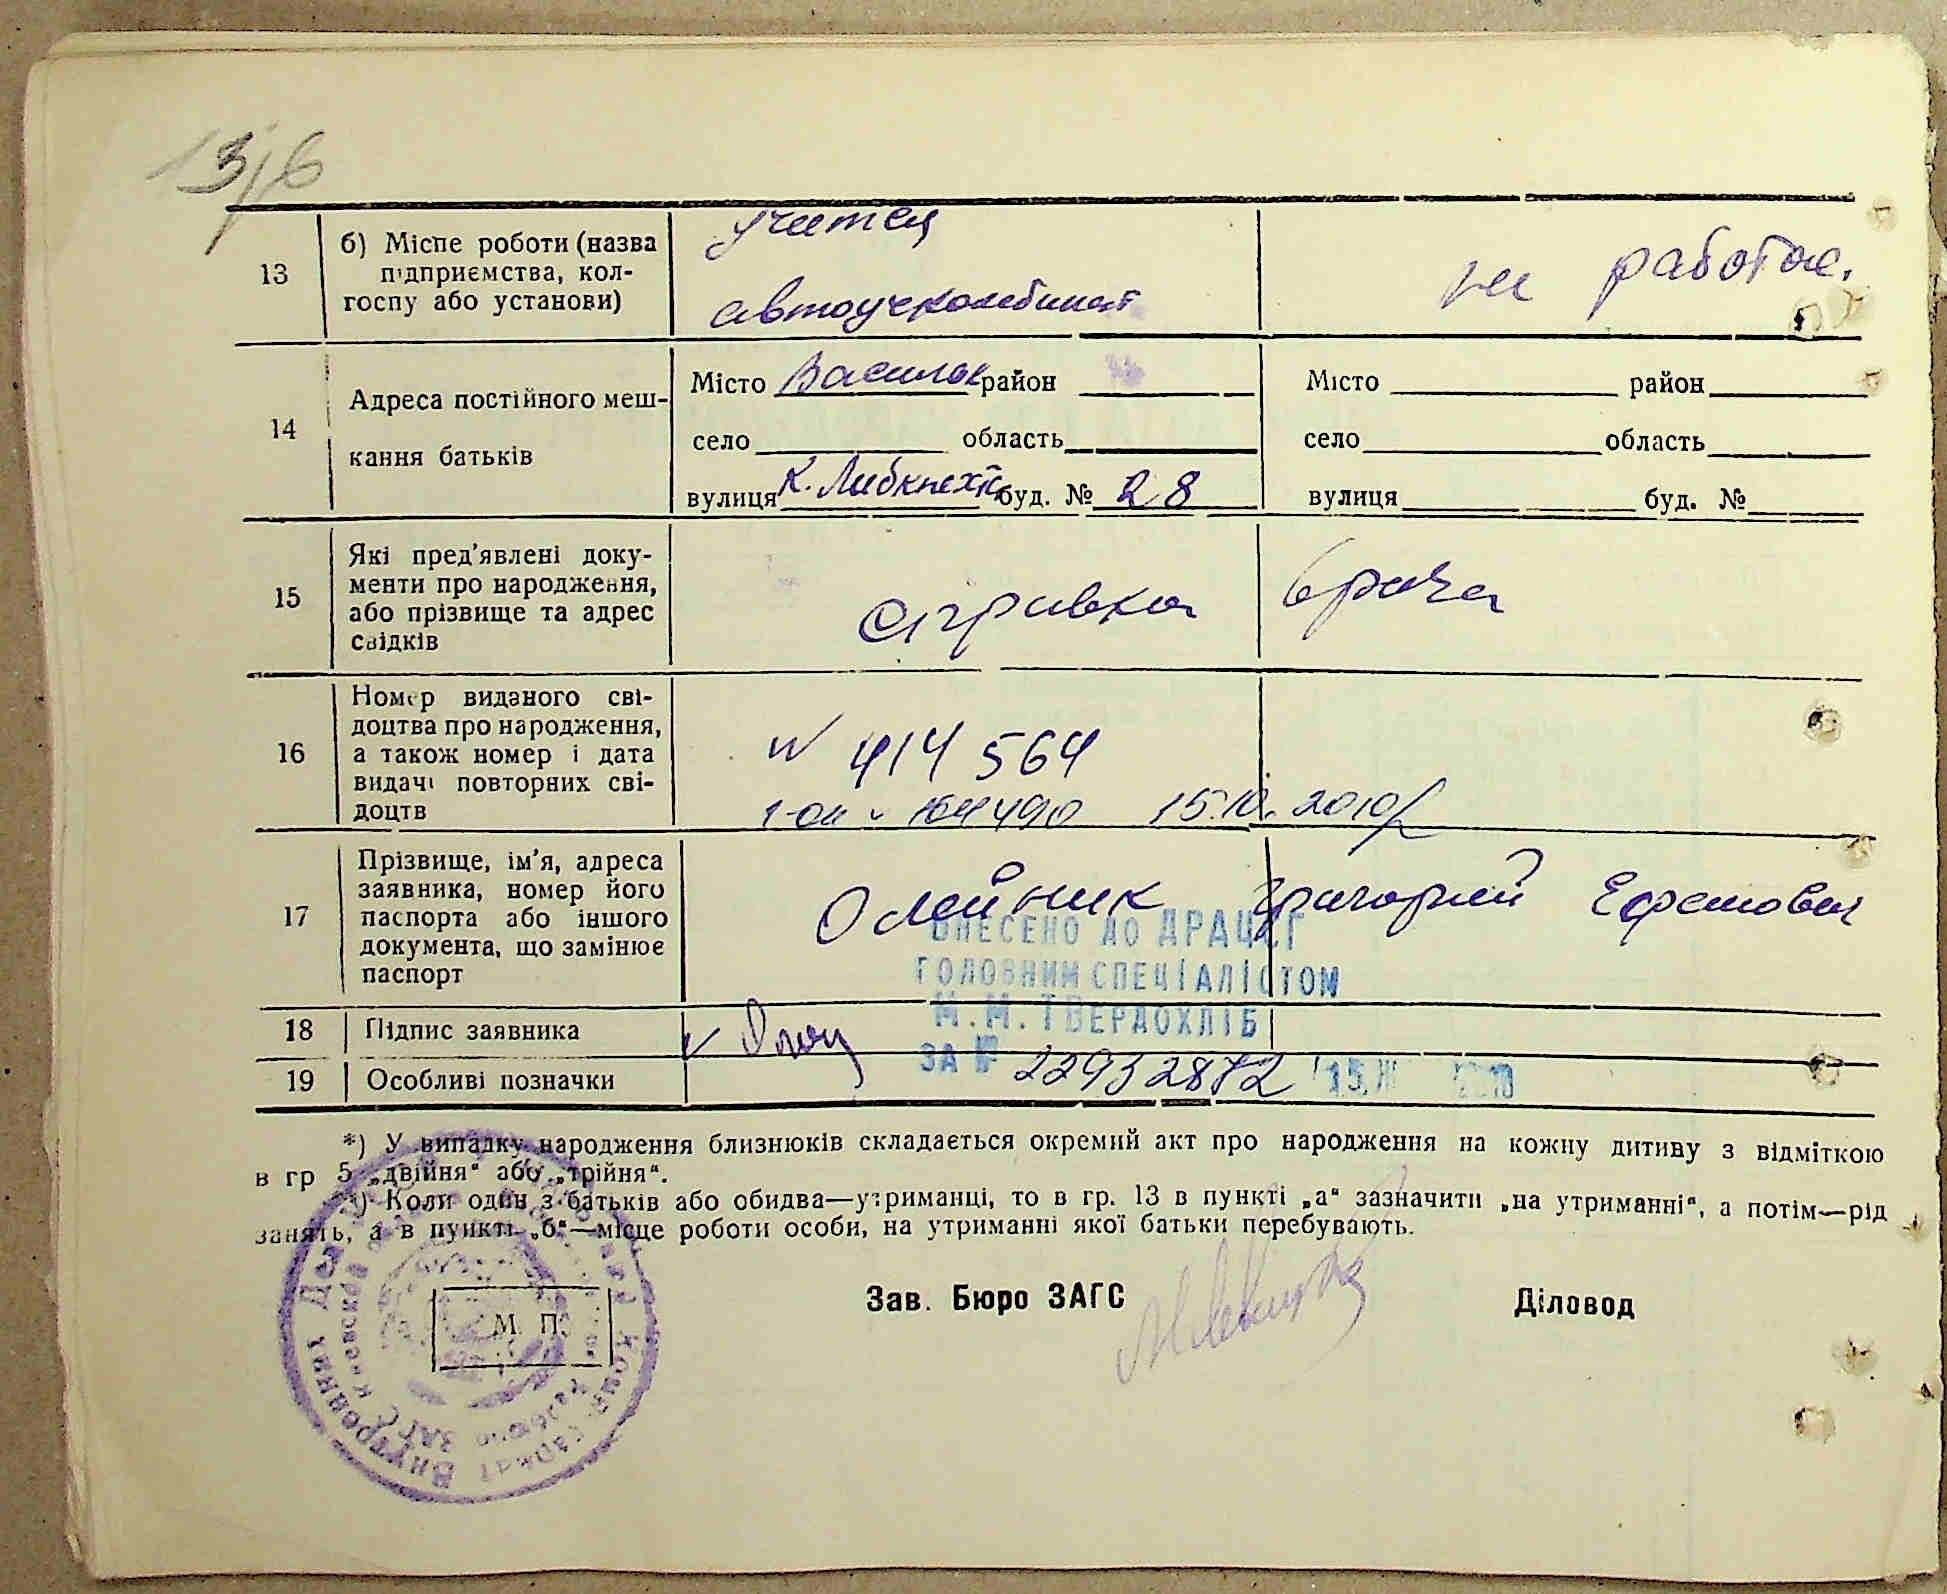 13/б
13
б) Місце роботи (назва
підприємства, кол-
госпу або установи)
учител
автоучкомбинат
не работае.
14
Адреса постійного меш-
кання батьків
Місто Васильк район
село область
вулиця К. Либкнехта буд. № 28
Місто район
село область
вулиця буд. №
15
Які пред'явлені доку-
менти про народження,
або прізвище та адрес
свідків
справка врача
16
Номер виданого сві-
доцтва про народження,
а також номер і дата
видачі повторних сві-
доцтв
N 414 564
164490 15.10.2010р
17
Прізвище, ім'я, адреса
заявника, номер його
паспорта або іншого
документа, що замінює
паспорт
Олейник Григорий Ефремович
ВНЕСЕНО ДО ДРАЦСГ
ГОЛОВНИМ СПЕЦІАЛІСТОМ
М.М. ТВЕРДОХЛІБ
ЗА № 22932872 15.
18
Підпис заявника
19
Особливі позначки
*) У випадку народження близнюків складається окремий акт про народження на кожну дитину з відміткою
в гр 5 „двійня“ або „трійня“.
*) Коли один з батьків або обидва—утриманці, то в гр. 13 в пункті „а“ зазначити „на утриманні“, а потім—рід
занять, а в пункті „б“—місце роботи особи, на утриманні якої батьки перебувають.
М. П.
Зав. Бюро ЗАГС
Діловод
Внутренних Дел
ЗАГС